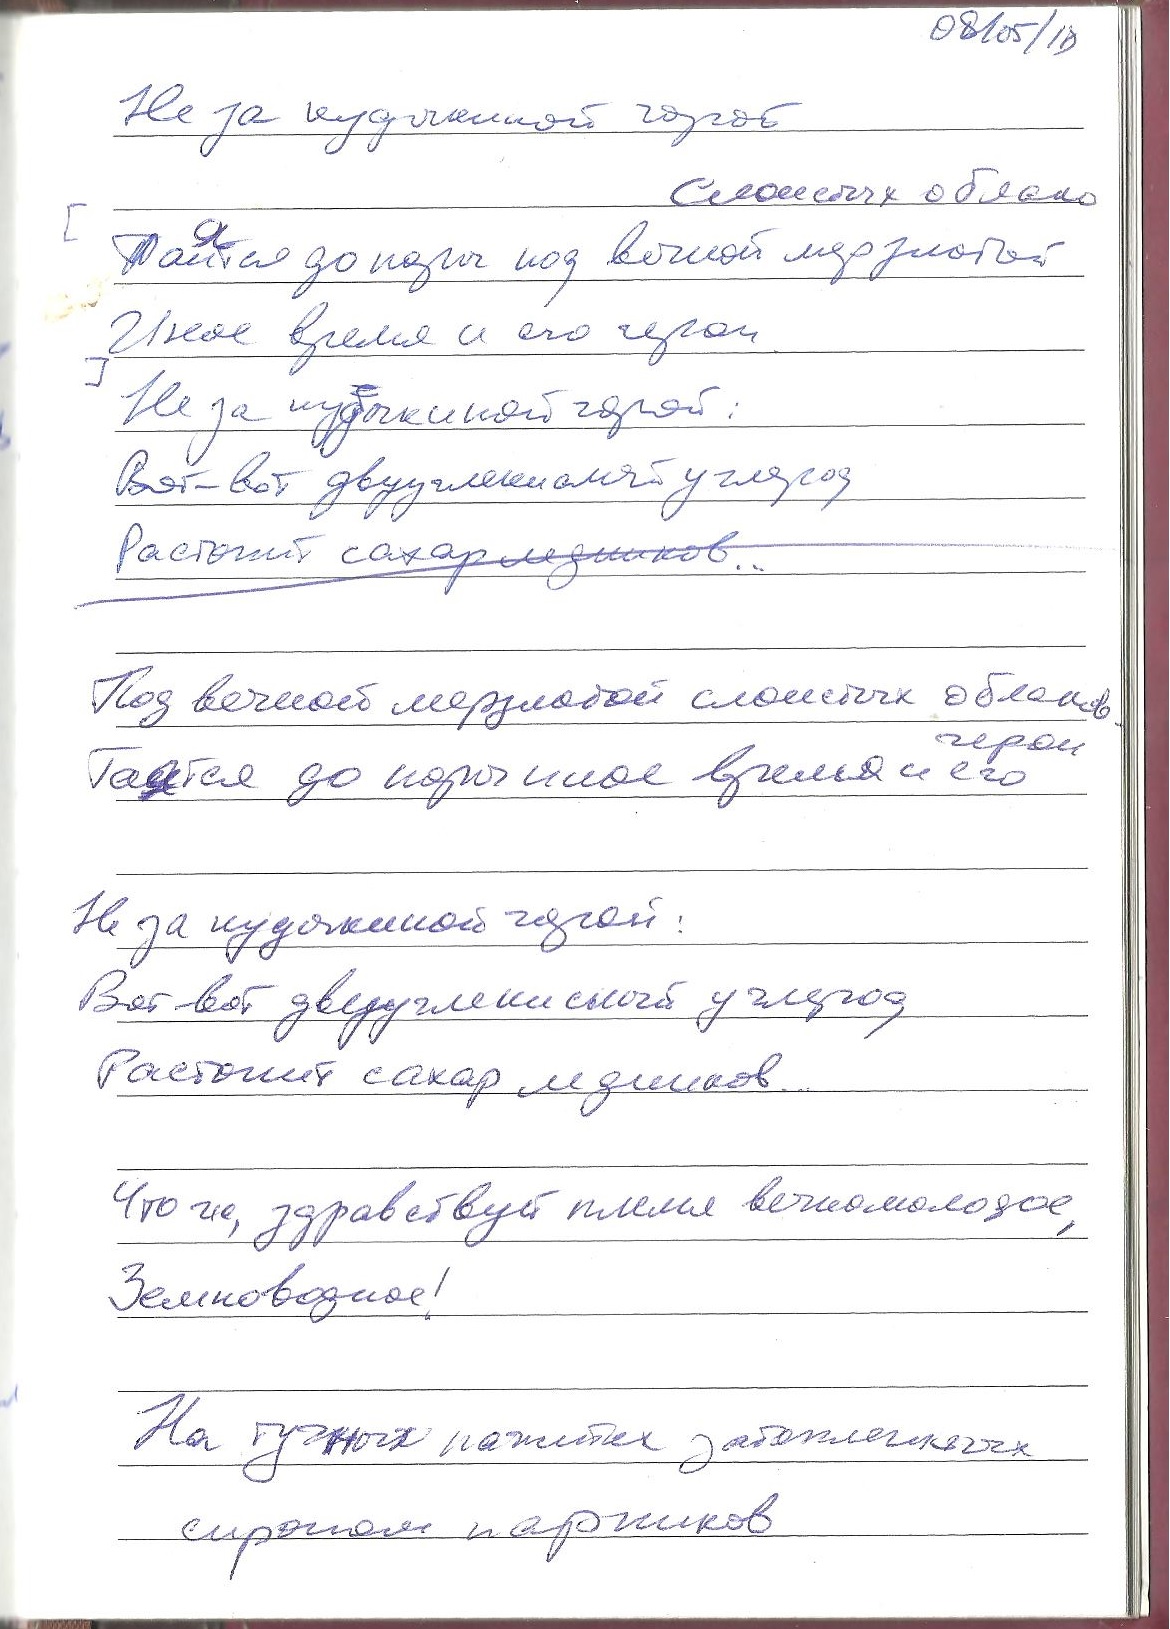 08/05/10
Не за кудыкиной горой
Слоистых облако
Таятся до поры под вечной мерзлотой
Иное время и его герои
Не за кудыкиной горой:
Вот-вот двууглекислый углерод
Растопит сахар ледников...
Под вечной мерзлотой слоистых облаков
Таятся до поры иное время и его
герои
Не за кудыкиной горой:
Вот-вот двууглекислый углерод
Растопит сахар ледников...
Что же, здравствуй племя вечномолодое,
Земноводное!
На тучных пажитях затопленных
сиропом парников